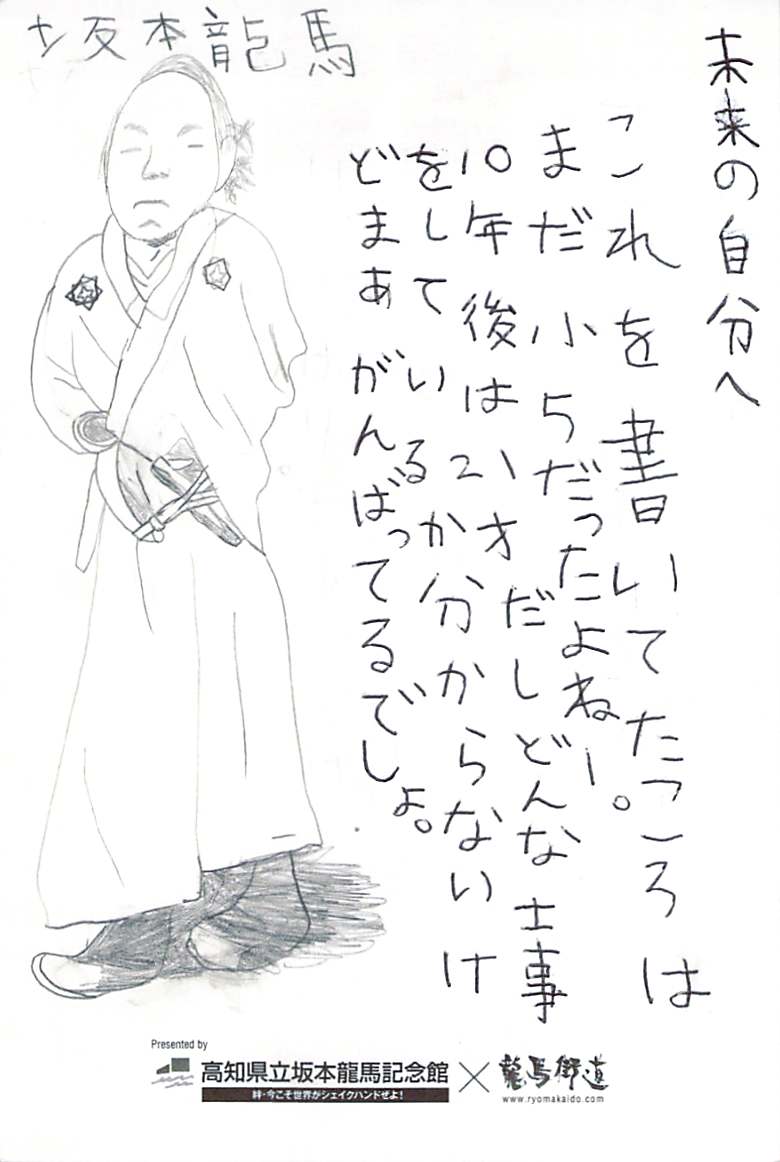 坂本龍馬
未来の自分へ
これを書いてたころは
まだ小5だったよねー。
10年後は21才だしどんな士事
をしているか分からないけ
どまあがんばってるでしょ。
Presented by
高知県立坂本龍馬記念館×龍馬街道
絆・今こそ世界がシェイクハンドぜよ!
www.ryomakaido.com